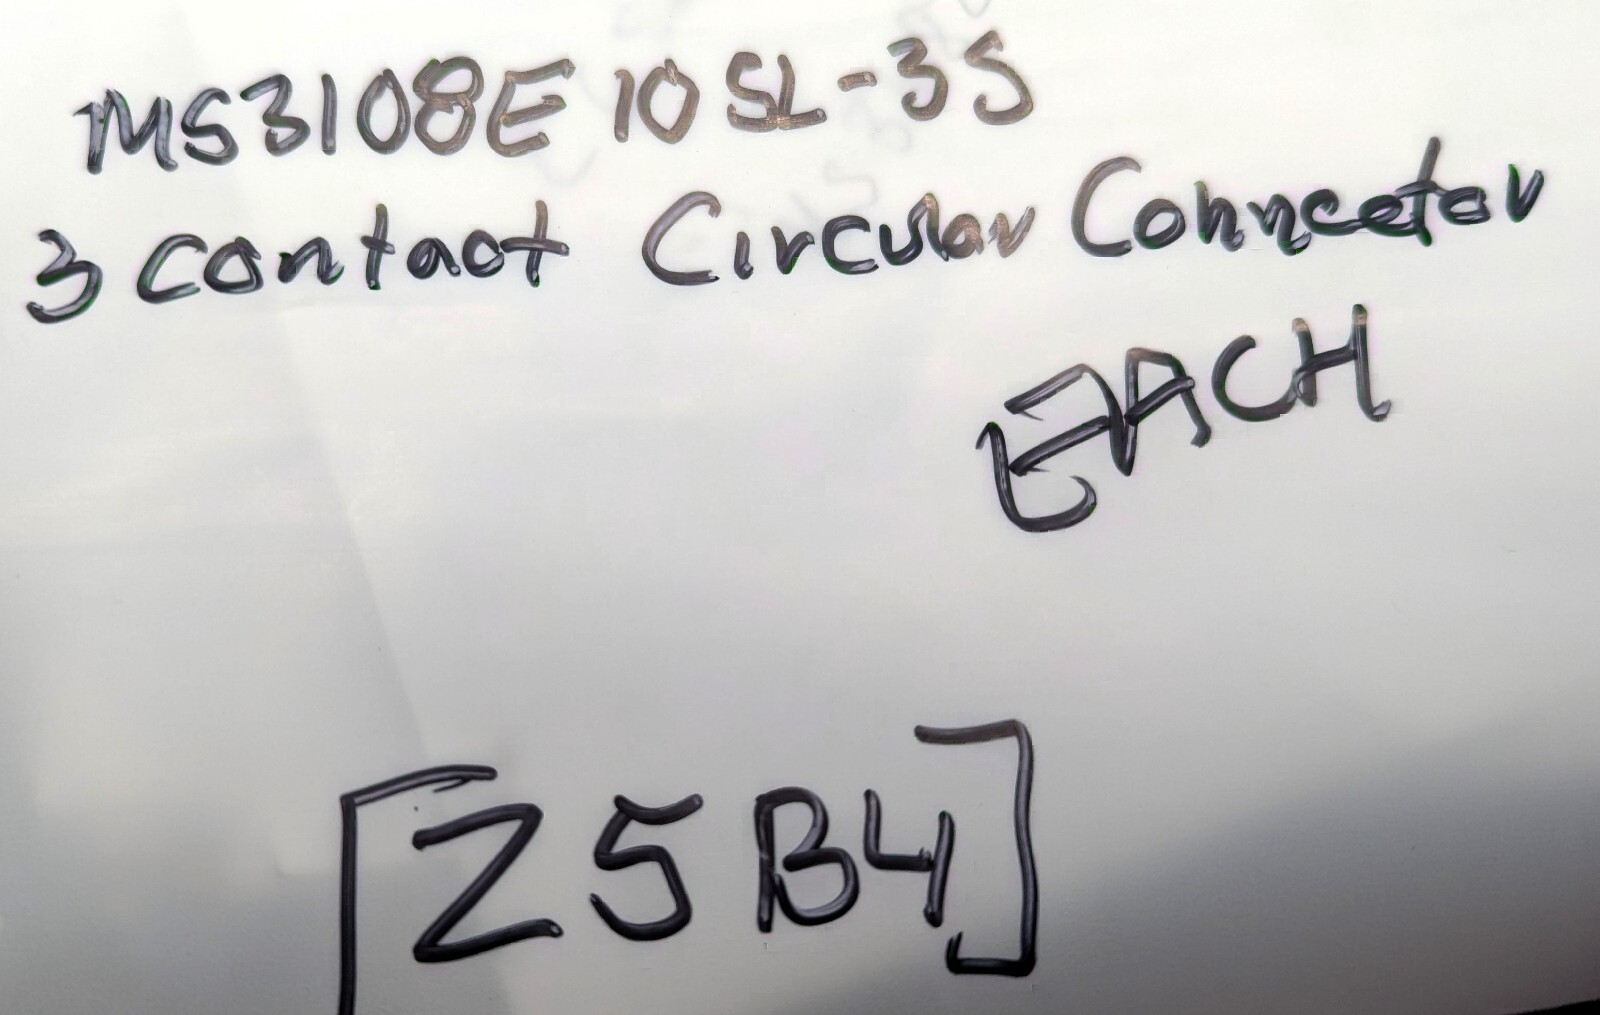 MS3108E 10SL-3S
3 contact Circular Connector
EACH
[Z5B4]